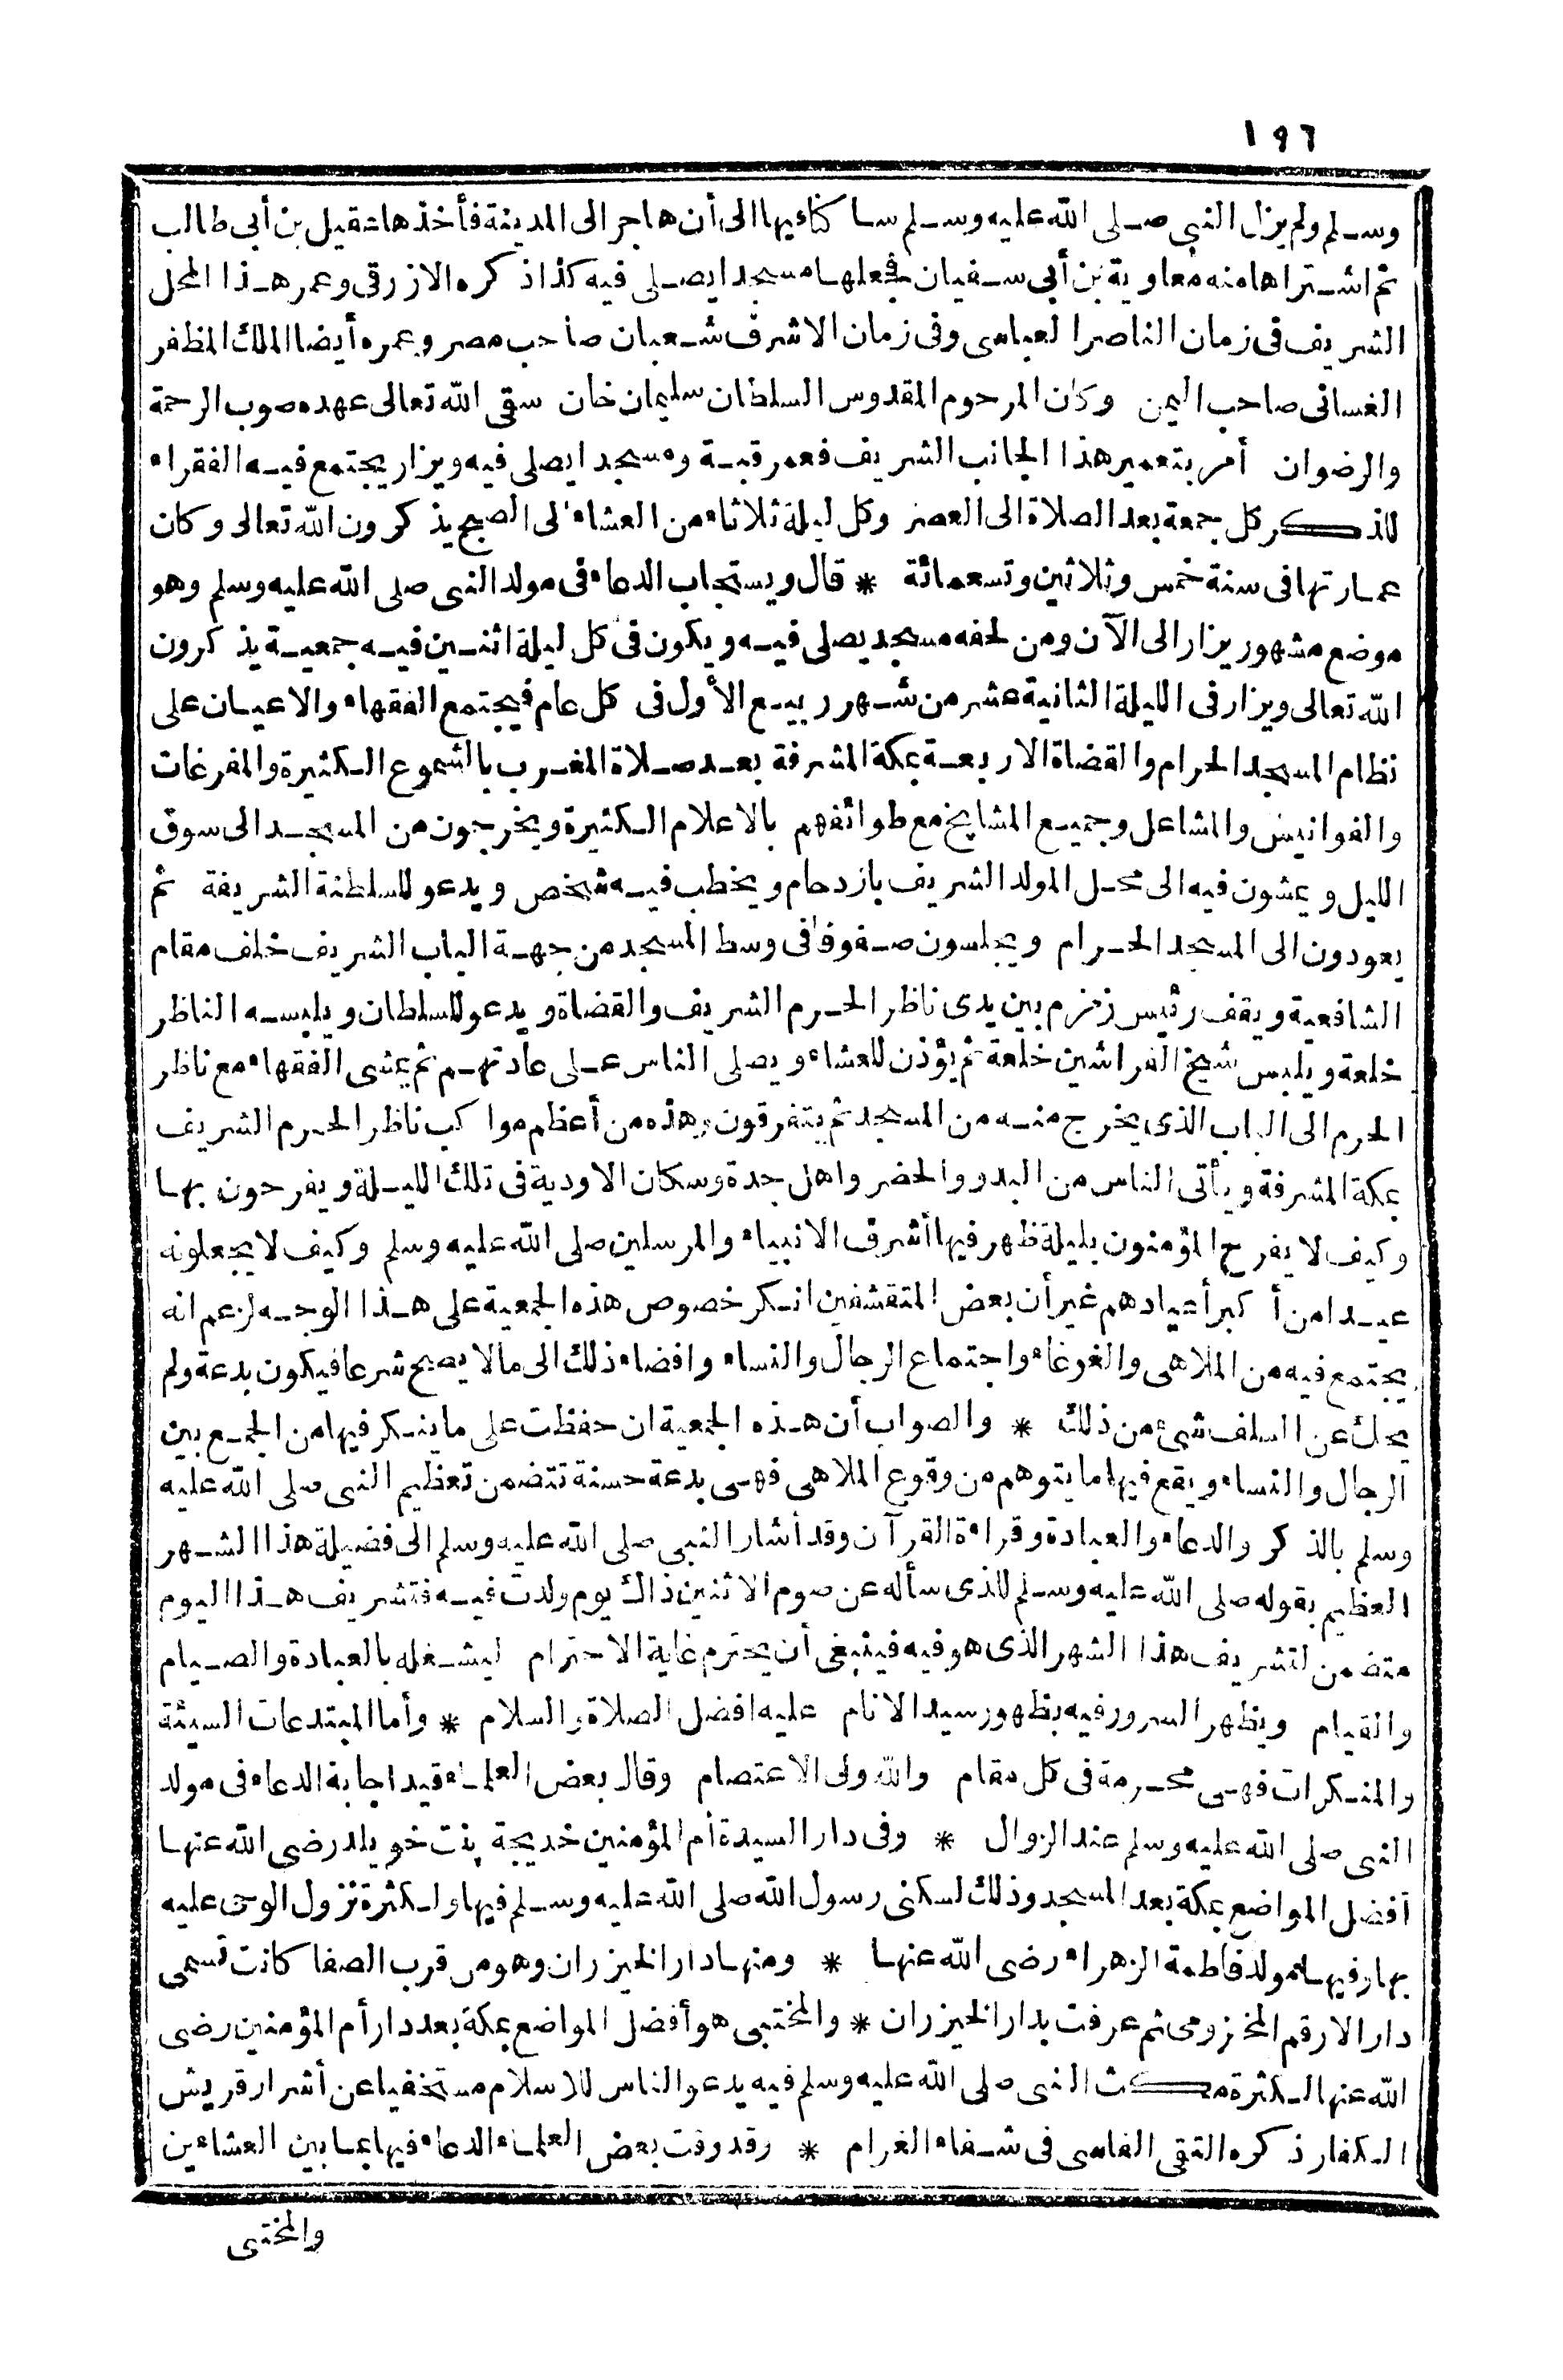 ١٩٦
وسلم ولم يزل النبي صلى الله عليه وسلم ساكنا فيها الى أن هاجر الى المدينة فأخذها عقيل بن أبي طالب
ثم اشتراها منه معاوية بن أبي سفيان فجعلها مسجدا يصلى فيه كذا ذكره الازرقى وعمر هذا المحل
الشريف فى زمان الناصر العباسى وفى زمان الاشرف شعبان صاحب مصر وعمره أيضا الملك المظفر
الغسانى صاحب اليمن وكان المرحوم المقدوس السلطان سليمان خان سقى الله تعالى عهده صوب الرحمة
والرضوان أمر بتعمير هذا الجانب الشريف فعمر قبة ومسجدا يصلى فيه ويزار يجتمع فيه الفقراء
للذكر كل جمعة بعد الصلاة الى العصر وكل ليلة ثلاثاء من العشاء الى الصبح يذكرون الله تعالى وكان
عمارتها فى سنة خمس وثلاثين وتسعمائة * قال ويستجاب الدعاء فى مولد النبى صلى الله عليه وسلم وهو
موضع مشهور يزار الى الآن ومن لحفه مسجد يصلى فيه ويكون فى كل ليلة اثنين فيه جمعية يذكرون
الله تعالى ويزار فى الليلة الثانية عشر من شهر ربيع الأول فى كل عام فيجتمع الفقهاء والاعيان على
نظام المسجد الحرام والقضاة الاربعة بمكة المشرفة بعد صلاة المغرب بالشموع الكثيرة والمفرغات
والفوانيس والمشاعل وجميع المشايخ مع طوائفهم بالاعلام الكثيرة ويخرجون من المسجد الى سوق
الليل ويمشون فيه الى محل المولد الشريف بازدحام ويخطب فيه شخص ويدعو للسلطنة الشريفة ثم
يعودون الى المسجد الحرام ويجلسون صفوفا فى وسط المسجد من جهة الباب الشريف خلف مقام
الشافعية ويقف رئيس زمزم بين يدى ناظر الحرم الشريف والقضاة ويدعو للسلطان ويلبسه الناظر
خلعة ويلبس شيخ الفراشين خلعة ثم يؤذن للعشاء ويصلى الناس على عادتهم ثم يمشى الفقهاء مع ناظر
الحرم الى الباب الذى يخرج منه من المسجد ثم يتفرقون وهذه من أعظم مواكب ناظر الحرم الشريف
بمكة المشرفة ويأتى الناس من البدو والحضر واهل جدة وسكان الاودية فى تلك الليلة ويفرحون بها
وكيف لا يفرح المؤمنون بليلة ظهر فيها أشرف الانبياء والمرسلين صلى الله عليه وسلم وكيف لا يجعلونه
عيدا من أكبر أعيادهم غير أن بعض المتقشفين انكر خصوص هذه الجمعية على هذا الوجه لزعم انه
يجتمع فيه من الملاهى والغوغاء واجتماع الرجال والنساء وافضاء ذلك الى مالا يصح شرعا فيكون بدعة ولم
يحك عن السلف شئ من ذلك * والصواب أن هذه الجمعية ان حفظت على ما ينكر فيها من الجمع بين
الرجال والنساء ويقع فيها ما يتوهم من وقوع الملاهى فهى بدعة حسنة تتضمن تعظيم النبى صلى الله عليه
وسلم بالذكر والدعاء والعبادة وقراءة القرآن وقد أشار النبى صلى الله عليه وسلم الى فضيلة هذا الشهر
العظيم بقوله صلى الله عليه وسلم للذى سأله عن صوم الاثنين ذاك يوم ولدت فيه فتشريف هذا اليوم
متضمن لتشريف هذا الشهر الذى هو فيه فينبغى أن يحترم غاية الاحترام ليشغله بالعبادة والصيام
والقيام ويظهر السرور فيه بظهور سيد الانام عليه افضل الصلاة والسلام * وأما المبتدعات السيئة
والمنكرات فهى محرمة فى كل مقام والله ولى الاعتصام وقال بعض العلماء قيد اجابة الدعاء فى مولد
النبى صلى الله عليه وسلم عند الزوال * وفى دار السيدة أم المؤمنين خديجة بنت خويلد رضى الله عنها
أفضل المواضع بمكة بعد المسجد وذلك لسكنى رسول الله صلى الله عليه وسلم فيها ولكثرة نزول الوحى عليه
بها وفيها مولد فاطمة الزهراء رضى الله عنها * ومنها دار الخيزران وهو من قرب الصفا كانت تسمى
دار الارقم المخزومى ثم عرفت بدار الخيزران * والمختبى هو أفضل المواضع بمكة بعد دار أم المؤمنين رضى
الله عنها لكثرة مكث النبى صلى الله عليه وسلم فيه يدعو الناس للاسلام مستخفيا عن أشرار قريش
الكفار ذكره التقى الفاسى فى شفاء الغرام * وقد وقت بعض العلماء الدعاء فيها بما بين العشاءين
والمختبى